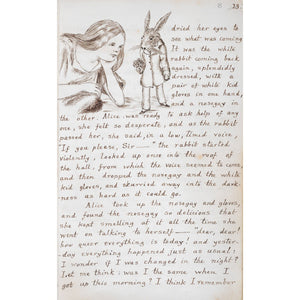 13.
dried her eyes to
see what was coming.
It was the white
rabbit coming back
again, splendidly
dressed, with a
pair of white kid
gloves in one hand,
and a nosegay in
the other. Alice was ready to ask help of any
one, she felt so desperate, and as the rabbit
passed her, she said, in a low, timid voice,
"If you please, Sir—" the rabbit started
violently, looked up once into the roof of
the hall, from which the voice seemed to come,
and then dropped the nosegay and the white
kid gloves, and skurried away into the dark-
ness as hard as it could go.
Alice took up the nosegay and gloves,
and found the nosegay so delicious that
she kept smelling at it all the time she
went on talking to herself— "dear, dear!
how queer everything is today! and yester-
day everything happened just as usual:
I wonder if I was changed in the night?
Let me think: was I the same when I
got up this morning? I think I remember